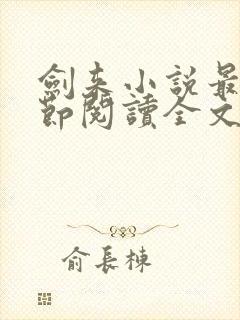 劍来小說最
節閱讀全文
俞長棟